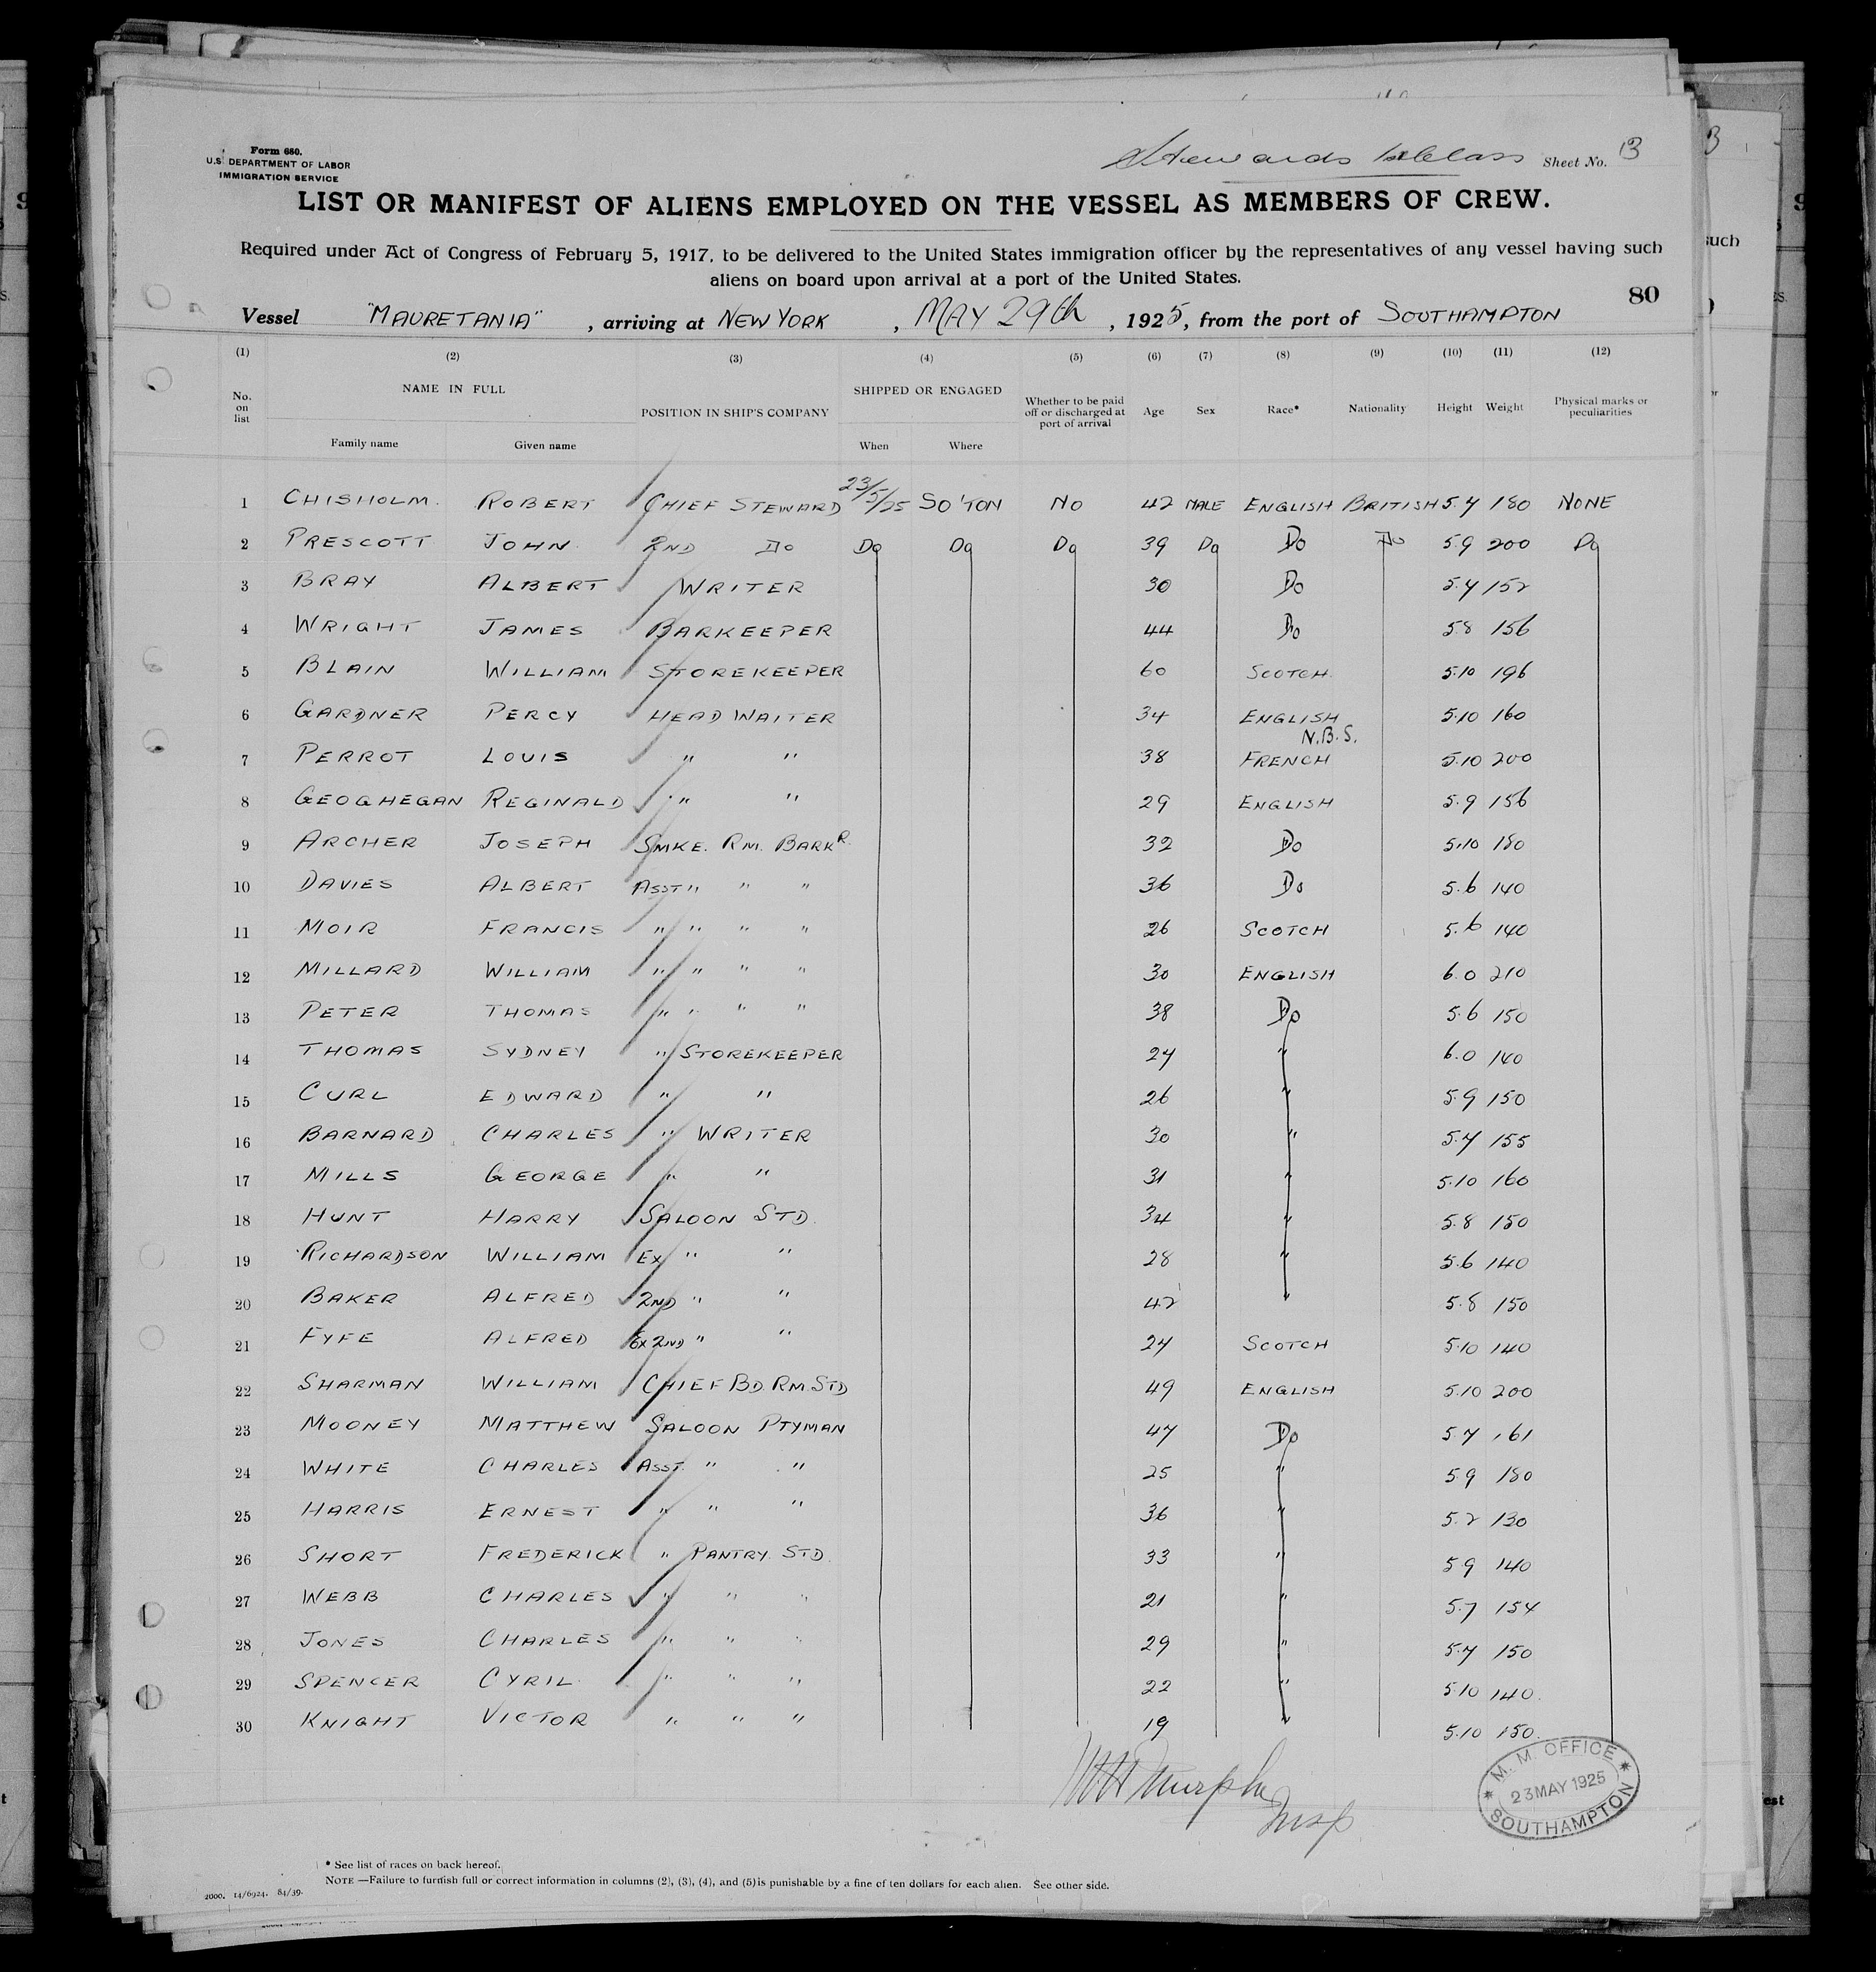 Form 680.
U.S. DEPARTMENT OF LABOR
IMMIGRATION SERVICE
Stewards 1st Class Sheet No. 13
LIST OR MANIFEST OF ALIENS EMPLOYED ON THE VESSEL AS MEMBERS OF CREW.
Required under Act of Congress of February 5, 1917, to be delivered to the United States immigration officer by the representatives of any vessel having such
aliens on board upon arrival at a port of the United States.
80
Vessel "MAURETANIA", arriving at NEW YORK, MAY 29th, 1925, from the port of SOUTHAMPTON
(1) (2) (3) (4) (5) (6) (7) (8) (9) (10) (11) (12)
No. on list NAME IN FULL POSITION IN SHIP'S COMPANY SHIPPED OR ENGAGED Whether to be paid off or discharged at port of arrival Age Sex Race* Nationality Height Weight Physical marks or peculiarities
Family name Given name When Where
1 CHISHOLM. ROBERT CHIEF STEWARD 23/5/25 SO'TON NO 42 MALE ENGLISH BRITISH 5.7 180 NONE
2 PRESCOTT JOHN 2ND DO DO DO DO 39 DO DO DO 5.9 200 DO
3 BRAY ALBERT WRITER 30 DO 5.7 152
4 WRIGHT JAMES BARKEEPER 44 DO 5.8 156
5 BLAIN WILLIAM STOREKEEPER 60 SCOTCH 5.10 196
6 GARDNER PERCY HEAD WAITER 34 ENGLISH 5.10 160
N.B.S.
7 PERROT LOUIS " " 38 FRENCH 5.10 200
8 GEOGHEGAN REGINALD " " 29 ENGLISH 5.9 156
9 ARCHER JOSEPH SMKE. RM. BARKR 32 DO 5.10 180
10 DAVIES ALBERT ASST " " " 36 DO 5.6 140
11 MOIR FRANCIS " " " " 26 SCOTCH 5.6 140
12 MILLARD WILLIAM " " " " 30 ENGLISH 6.0 210
13 PETER THOMAS " " " " 38 DO 5.6 150
14 THOMAS SYDNEY " STOREKEEPER 24 " 6.0 140
15 CURL EDWARD " " 26 " 5.9 150
16 BARNARD CHARLES " WRITER 30 " 5.7 155
17 MILLS GEORGE " " 31 " 5.10 160
18 HUNT HARRY SALOON STD. 34 " 5.8 150
19 RICHARDSON WILLIAM EX " " 28 " 5.6 140
20 BAKER ALFRED 2ND " " 42 " 5.8 150
21 FYFE ALFRED EX 2ND " " 24 SCOTCH 5.10 140
22 SHARMAN WILLIAM CHIEF BD. RM. STD 49 ENGLISH 5.10 200
23 MOONEY MATTHEW SALOON PTYMAN 47 DO 5.7 161
24 WHITE CHARLES ASST. " " 25 " 5.9 180
25 HARRIS ERNEST " " " 36 " 5.2 130
26 SHORT FREDERICK " PANTRY STD. 33 " 5.9 140
27 WEBB CHARLES " " " 21 " 5.7 154
28 JONES CHARLES " " " 29 " 5.7 150
29 SPENCER CYRIL " " " 22 " 5.10 140
30 KNIGHT VICTOR " " " 19 " 5.10 150
Murphy
Insp
M. M. OFFICE
23 MAY 1925
SOUTHAMPTON
* See list of races on back hereof.
NOTE —Failure to furnish full or correct information in columns (2), (3), (4), and (5) is punishable by a fine of ten dollars for each alien. See other side.
2000. 14/6924. 84/39.